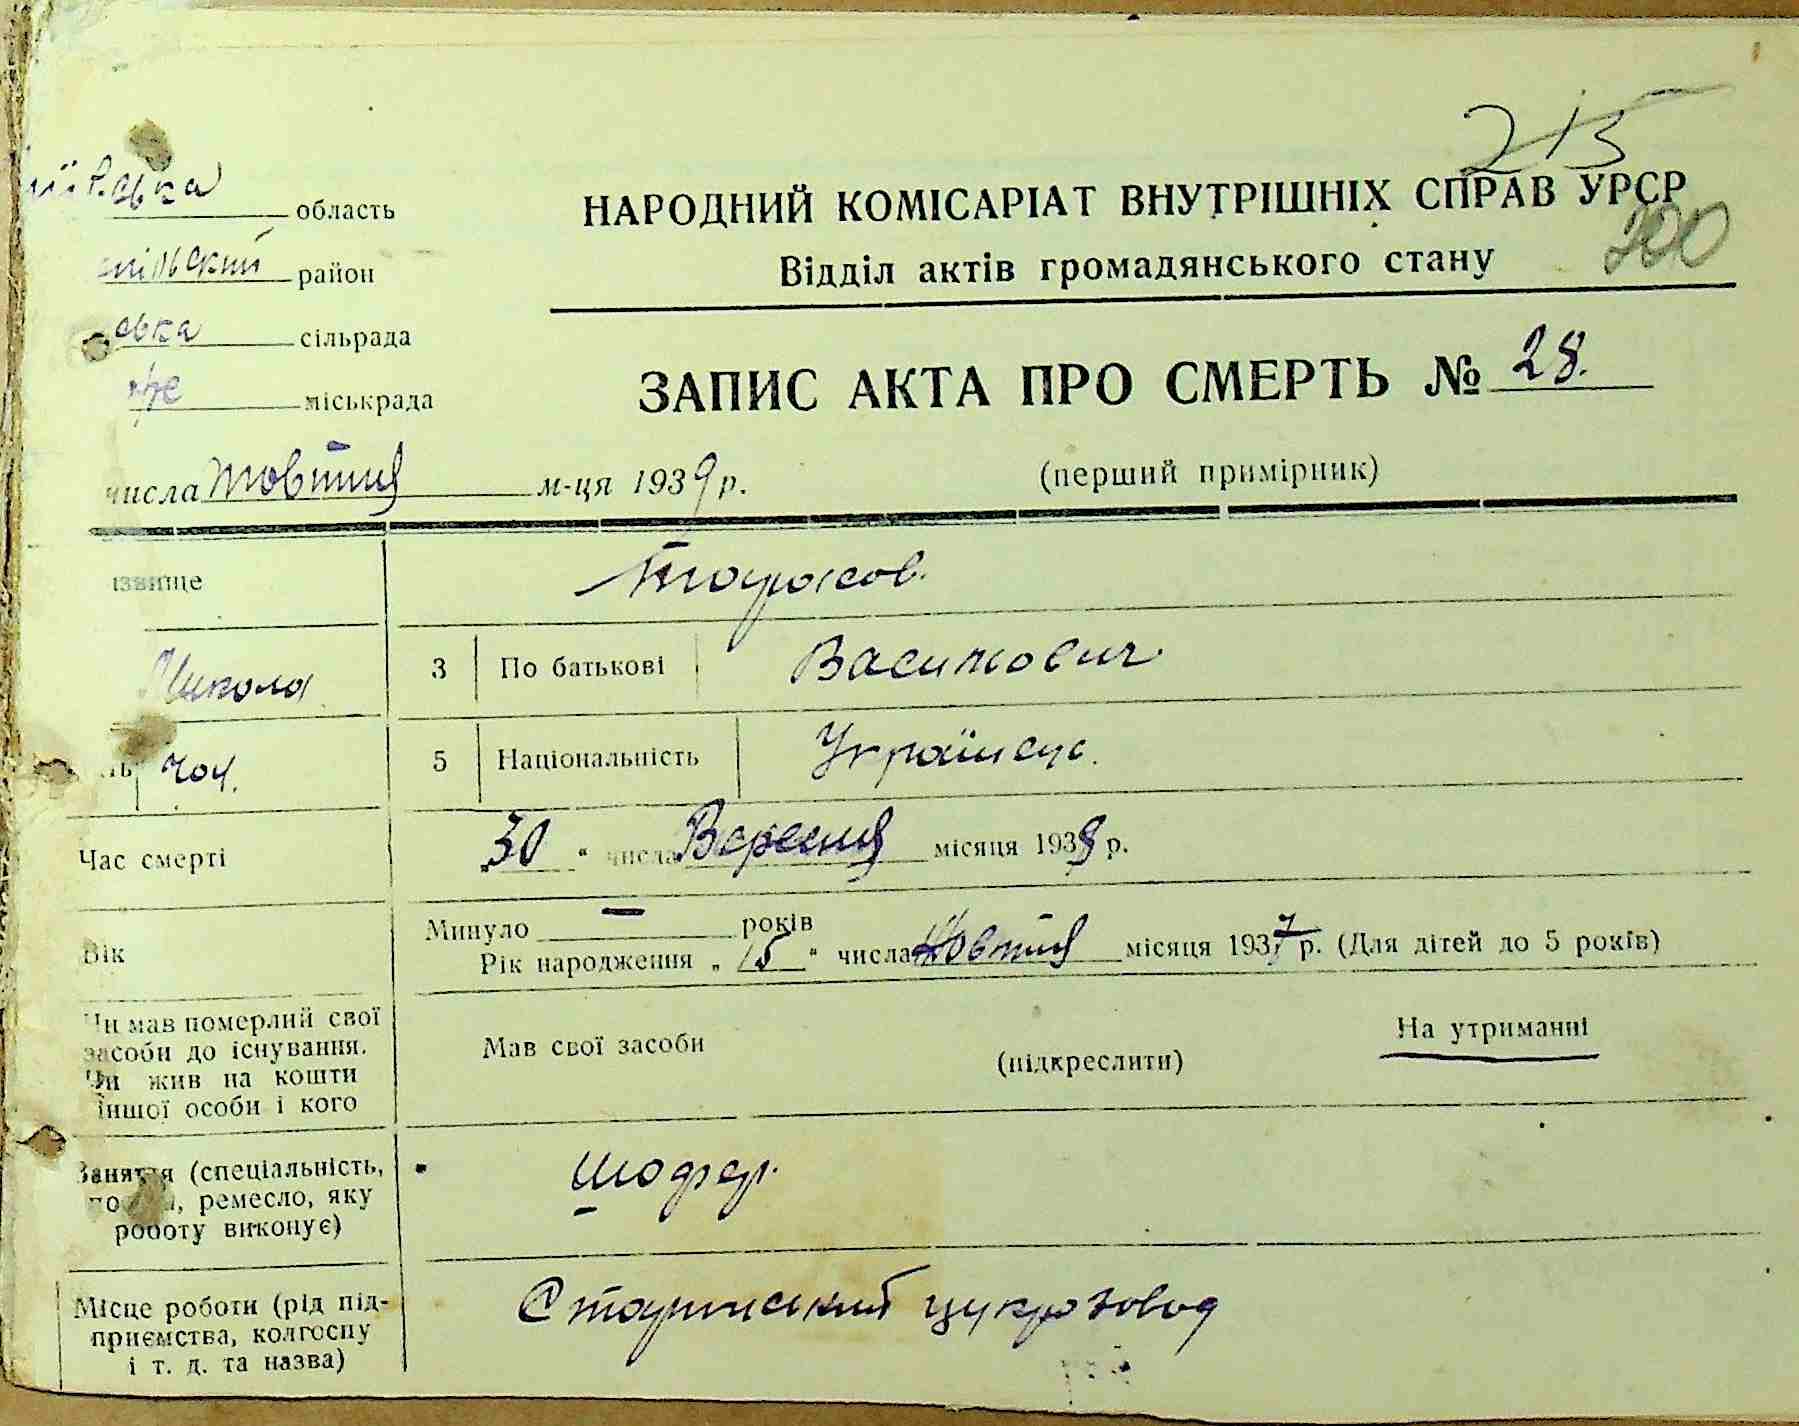 215
область
НАРОДНИЙ КОМІСАРІАТ ВНУТРІШНІХ СПРАВ УРСР
200
район
Відділ актів громадянського стану
евка сільрада
міськрада
ЗАПИС АКТА ПРО СМЕРТЬ № 28.
числа Жовтня м-ця 1939 р. (перший примірник)
ізвище Тарасов.
Микола 3 По батькові Васильович
чол. 5 Національність Українец.
Час смерті 30 " числа Вересня місяця 1939 р.
Вік Минуло — років
Рік народження „ 15 " числа Жовтня місяця 1937 р. (Для дітей до 5 років)
Чи мав померлий свої
засоби до існування.
Чи жив на кошти
іншої особи і кого
Мав свої засоби (підкреслити) На утриманні
Заняття (спеціальність,
ремесло, яку
роботу виконує)
шофер.
Місце роботи (рід під-
приємства, колгоспу
і т. д. та назва)
Старинський цукрозавод